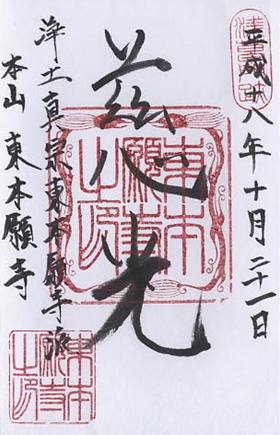 平成十八年十月二十一日
慈光
浄土真宗東本願寺派
本山 東本願寺
東本
願寺
之印
東本
願寺
之印